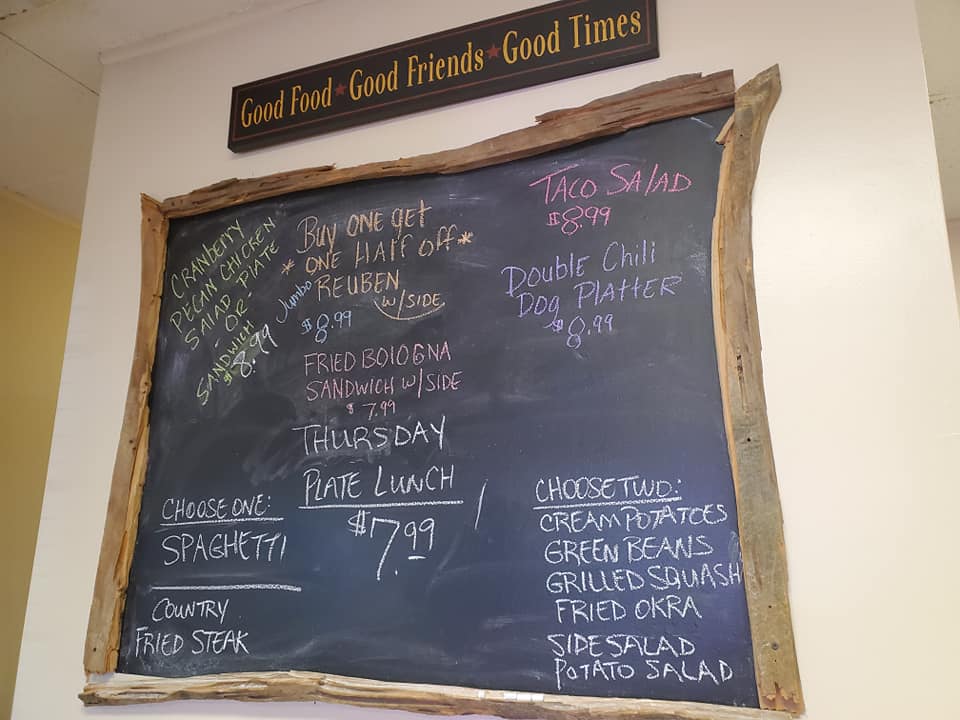 Good Food ★ Good Friends ★ Good Times
CRANBERRY
PECAN CHICKEN
SALAD PLATE
- OR
SANDWICH
$8.99
BUY ONE GET
* ONE HALF OFF *
Jumbo REUBEN
W/SIDE
$8.99
FRIED BOLOGNA
SANDWICH W/SIDE
$7.99
TACO SALAD
$8.99
DOUBLE CHILI
DOG PLATTER
$8.99
THURSDAY
PLATE LUNCH
$7.99
CHOOSE ONE:
SPAGHETTI
COUNTRY
FRIED STEAK
CHOOSE TWO:
CREAM POTATOES
GREEN BEANS
GRILLED SQUASH
FRIED OKRA
SIDE SALAD
POTATO SALAD